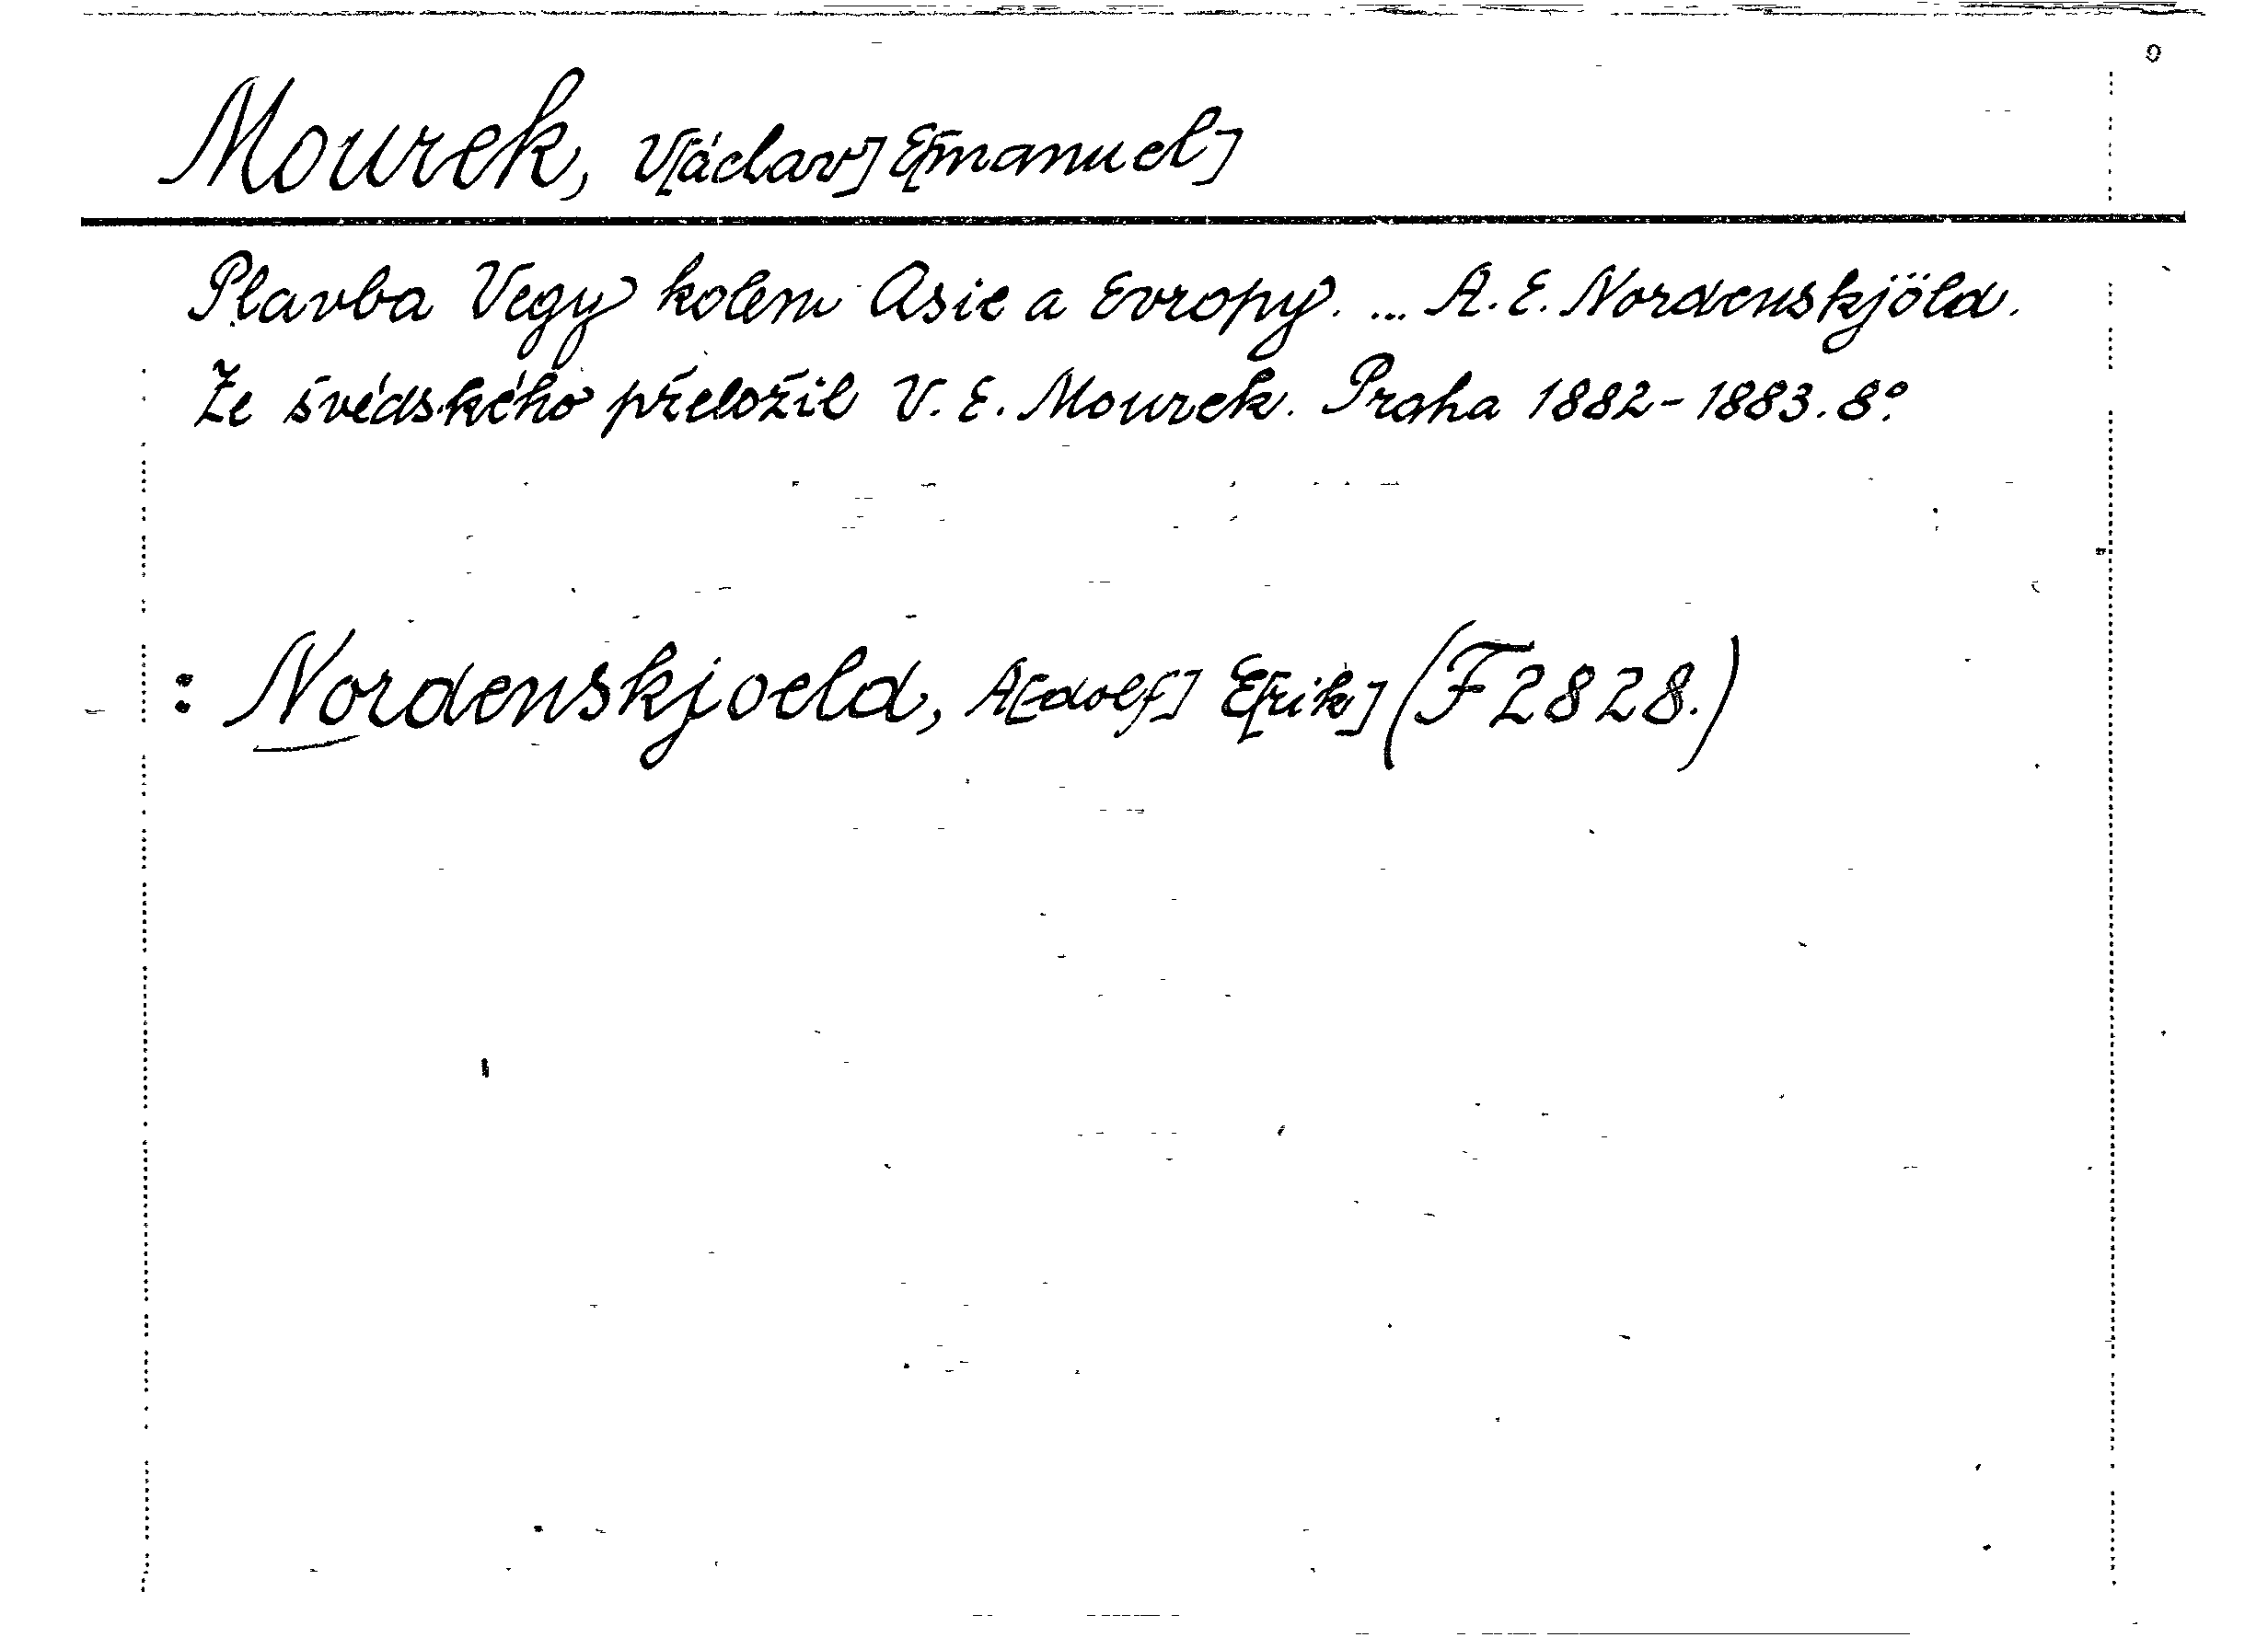 Mourek, V[áclav] E[manuel]
Plavba Vegy kolem Asie a Evropy. ... A. E. Nordenskjöld.
Ze švédského přeložil V. E. Mourek. Praha 1882-1883. 8º.
: Nordenskjoeld, A[dolf] E[rik] (F 2828.)